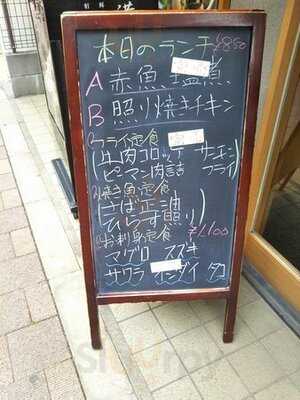 本日のランチ ¥850
A 赤魚塩煮
B 照り焼きチキン
フライ定食
牛肉コロッケ サーモン
ピーマン肉詰 フライ
焼き魚定食
さば正油
ひらす照り
お刺身定食 ¥1,100
マグロ スズキ
サワラ キンダイ タコ